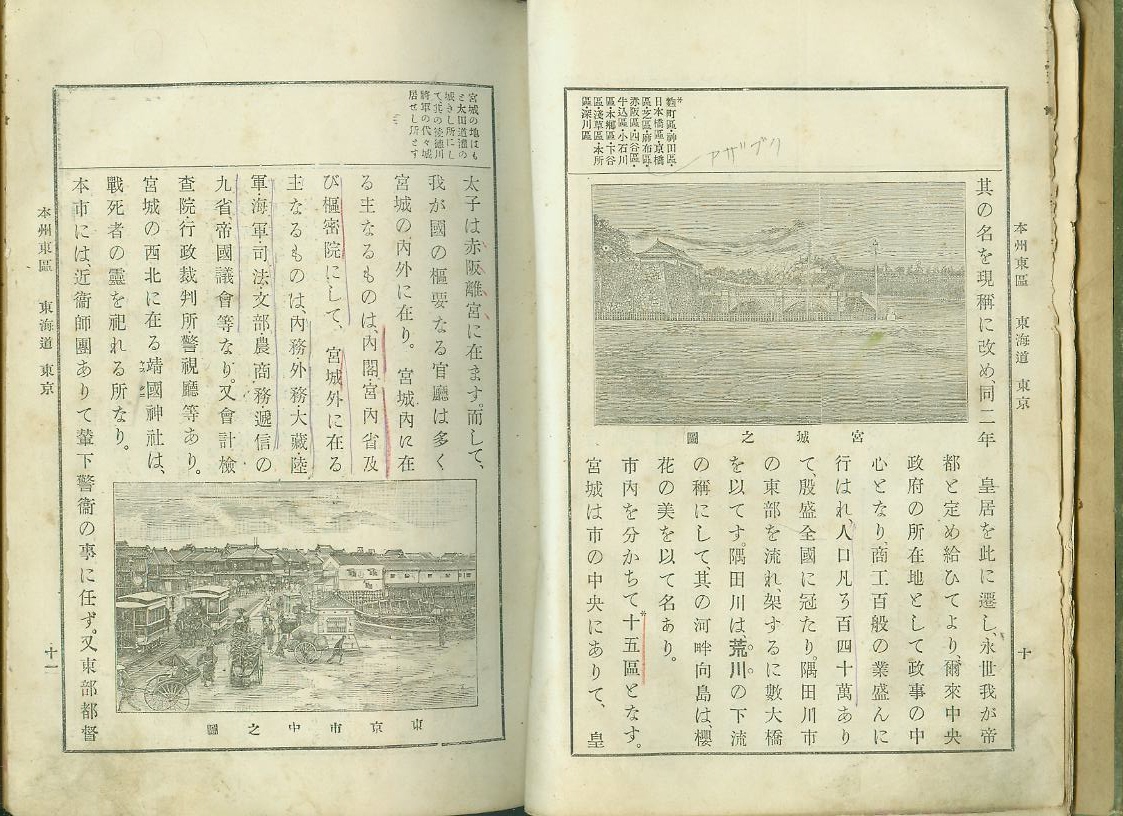 本州東區 東海道 東京
十
麴町區·神田區·
日本橋區·京橋
區·芝區·麻布區·
赤阪區·四谷區·
牛込區·小石川
區·本郷區·下谷
區·淺草區·本所
區·深川區
アザブク
其の名を現稱に改め、同二年
皇居を此に遷し、永世我が帝
都と定め給ひてより、爾來中央
政府の所在地として政事の中
心となり、商工百般の業盛んに
行はれ、人口凡ろ百四十萬あり
て、殷盛全國に冠たり。隅田川市
の東部を流れ、架するに數大橋
を以てす。隅田川は、荒川の下流
の稱にして、其の河畔向島は、櫻
花の美を以て名あり。
市內を分かちて*十五區となす。
宮城は市の中央にありて、皇
宮城之圖
宮城の地はも
と太田道灌の
城きし所にし
て、其の後德川
將軍の代々城
居せし所とす
太子は赤阪離宮に在ます。而して、
我が國の樞要なる官廳は多く
宮城の內外に在り。宮城內に在
る主なるものは、內閣宮內省及
び樞密院にして、宮城外に在る
主なるものは、內務·外務·大藏·陸
軍·海軍·司法·文部·農商務·遞信の
九省·帝國議會等なり。又會計檢
查院·行政裁判所·警視廳等あり。
宮城の西北に在る靖國神社は、
戰死者の靈を祀れる所なり。
本市には、近衞師團ありて輦下警衞の事に任ず。又東部都督
東京市中之圖
本州東區 東海道 東京
十一